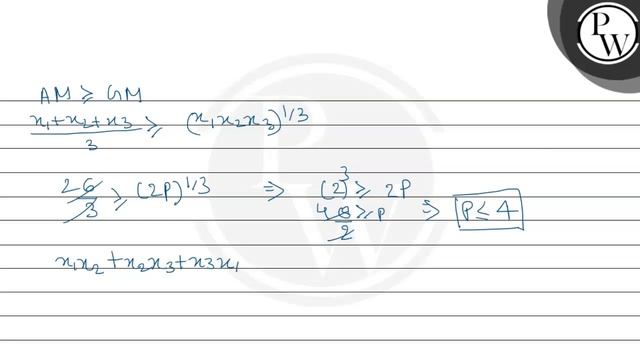 PW
AM ≥ GM
(x₁+x₂+x₃)/3 ≥ (x₁x₂x₃)^1/3
2 6/3 ≥ (2P)^1/3 ⇒ (2)³ ≥ 2P
4 8/2 ≥ P ⇒ P ≤ 4
x₁x₂ + x₂x₃ + x₃x₁